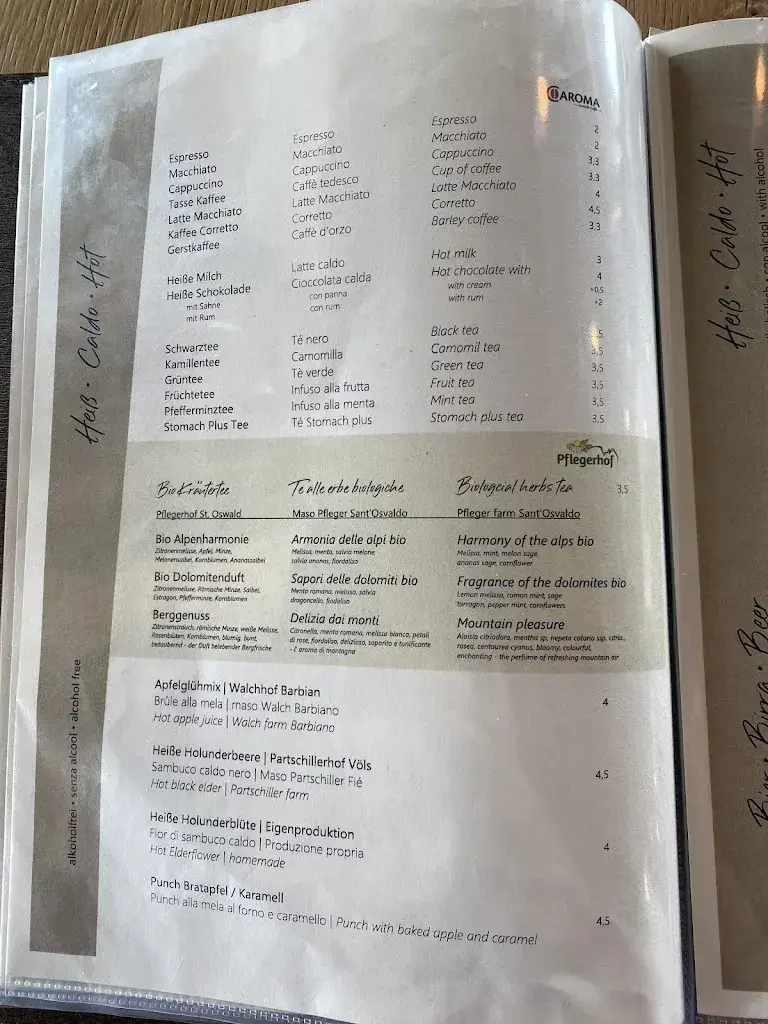 CAROMA
Espresso Espresso Espresso 2
Macchiato Macchiato Macchiato 2
Cappuccino Cappuccino Cappuccino 3,3
Tasse Kaffee Caffè tedesco Cup of coffee 3.3
Latte Macchiato Latte Macchiato Latte Macchiato 4
Kaffee Corretto Corretto Corretto 4,5
Gerstkaffee Caffè d'orzo Barley coffee 3.3
Heiße Milch Latte caldo Hot milk 3
Heiße Schokolade Cioccolata calda Hot chocolate with 4
mit Sahne con panna with cream +0,5
mit Rum con rum with rum +2
Schwarztee Té nero Black tea ,5
Kamillentee Camomilla Camomil tea 3,5
Grüntee Tè verde Green tea 3,5
Früchtetee Infuso alla frutta Fruit tea 3,5
Pfefferminztee Infuso alla menta Mint tea 3,5
Stomach Plus Tee Té Stomach plus Stomach plus tea 3,5
Pflegerhof
Bio Kräutertee Te alle erbe biologiche Biologcial herbs tea 3,5
Pflegerhof St. Oswald Maso Pfleger Sant'Osvaldo Pfleger farm Sant'Osvaldo
Bio Alpenharmonie Armonia delle alpi bio Harmony of the alps bio
Zitronenmelisse, Apfel, Minze, Melissa, menta, salvia melone, Melissa, mint, melon sage,
Melonensalbei, Kornblumen, Ananassalbei salvia ananas, fiordaliso ananas sage, cornflower
Bio Dolomitenduft Sapori delle dolomiti bio Fragrance of the dolomites bio
Zitronenmelisse, Römische Minze, Salbei, Menta romana, melissa, salvia Lemon melissa, roman mint, sage
Estragon, Pfefferminze, Kornblumen dragoncello, fiodaliso tarragon, pepper mint, cornflowers
Berggenuss Delizia dai monti Mountain pleasure
Zitronenstrauch, römische Minze, weiße Melisse, Citronella, menta romana, melissa bianca, petali Aloisia citriodora, mentha sp, nepeta cataria ssp. citria,
Rosenblüten, Kornblumen, blumig, bunt, di rose, fiordaliso, delizioso, saporito e tonificante rosea, centaurea cyanus, bloomy, colourful,
bezaubernd - der Duft belebender Bergfrische - l' aroma di montagna enchanting - the perfume of refreshing mountain air
Apfelglühmix | Walchhof Barbian
Brûle alla mela | maso Walch Barbiano 4
Hot apple juice | Walch farm Barbiano
Heiße Holunderbeere | Partschillerhof Völs
Sambuco caldo nero | Maso Partschiller Fié 4,5
Hot black elder | Partschiller farm
Heiße Holunderblüte | Eigenproduktion
Fior di sambuco caldo | Produzione propria 4
Hot Elderflower | homemade
Punch Bratapfel / Karamell
Punch alla mela al forno e caramello | Punch with baked apple and caramel 4,5
Heiß • Caldo • Hot
alkoholfrei • senza alcool • alcohol free
Heiß • Caldo • Hot
con alcool • with alcohol
Bier • Birra • Beer